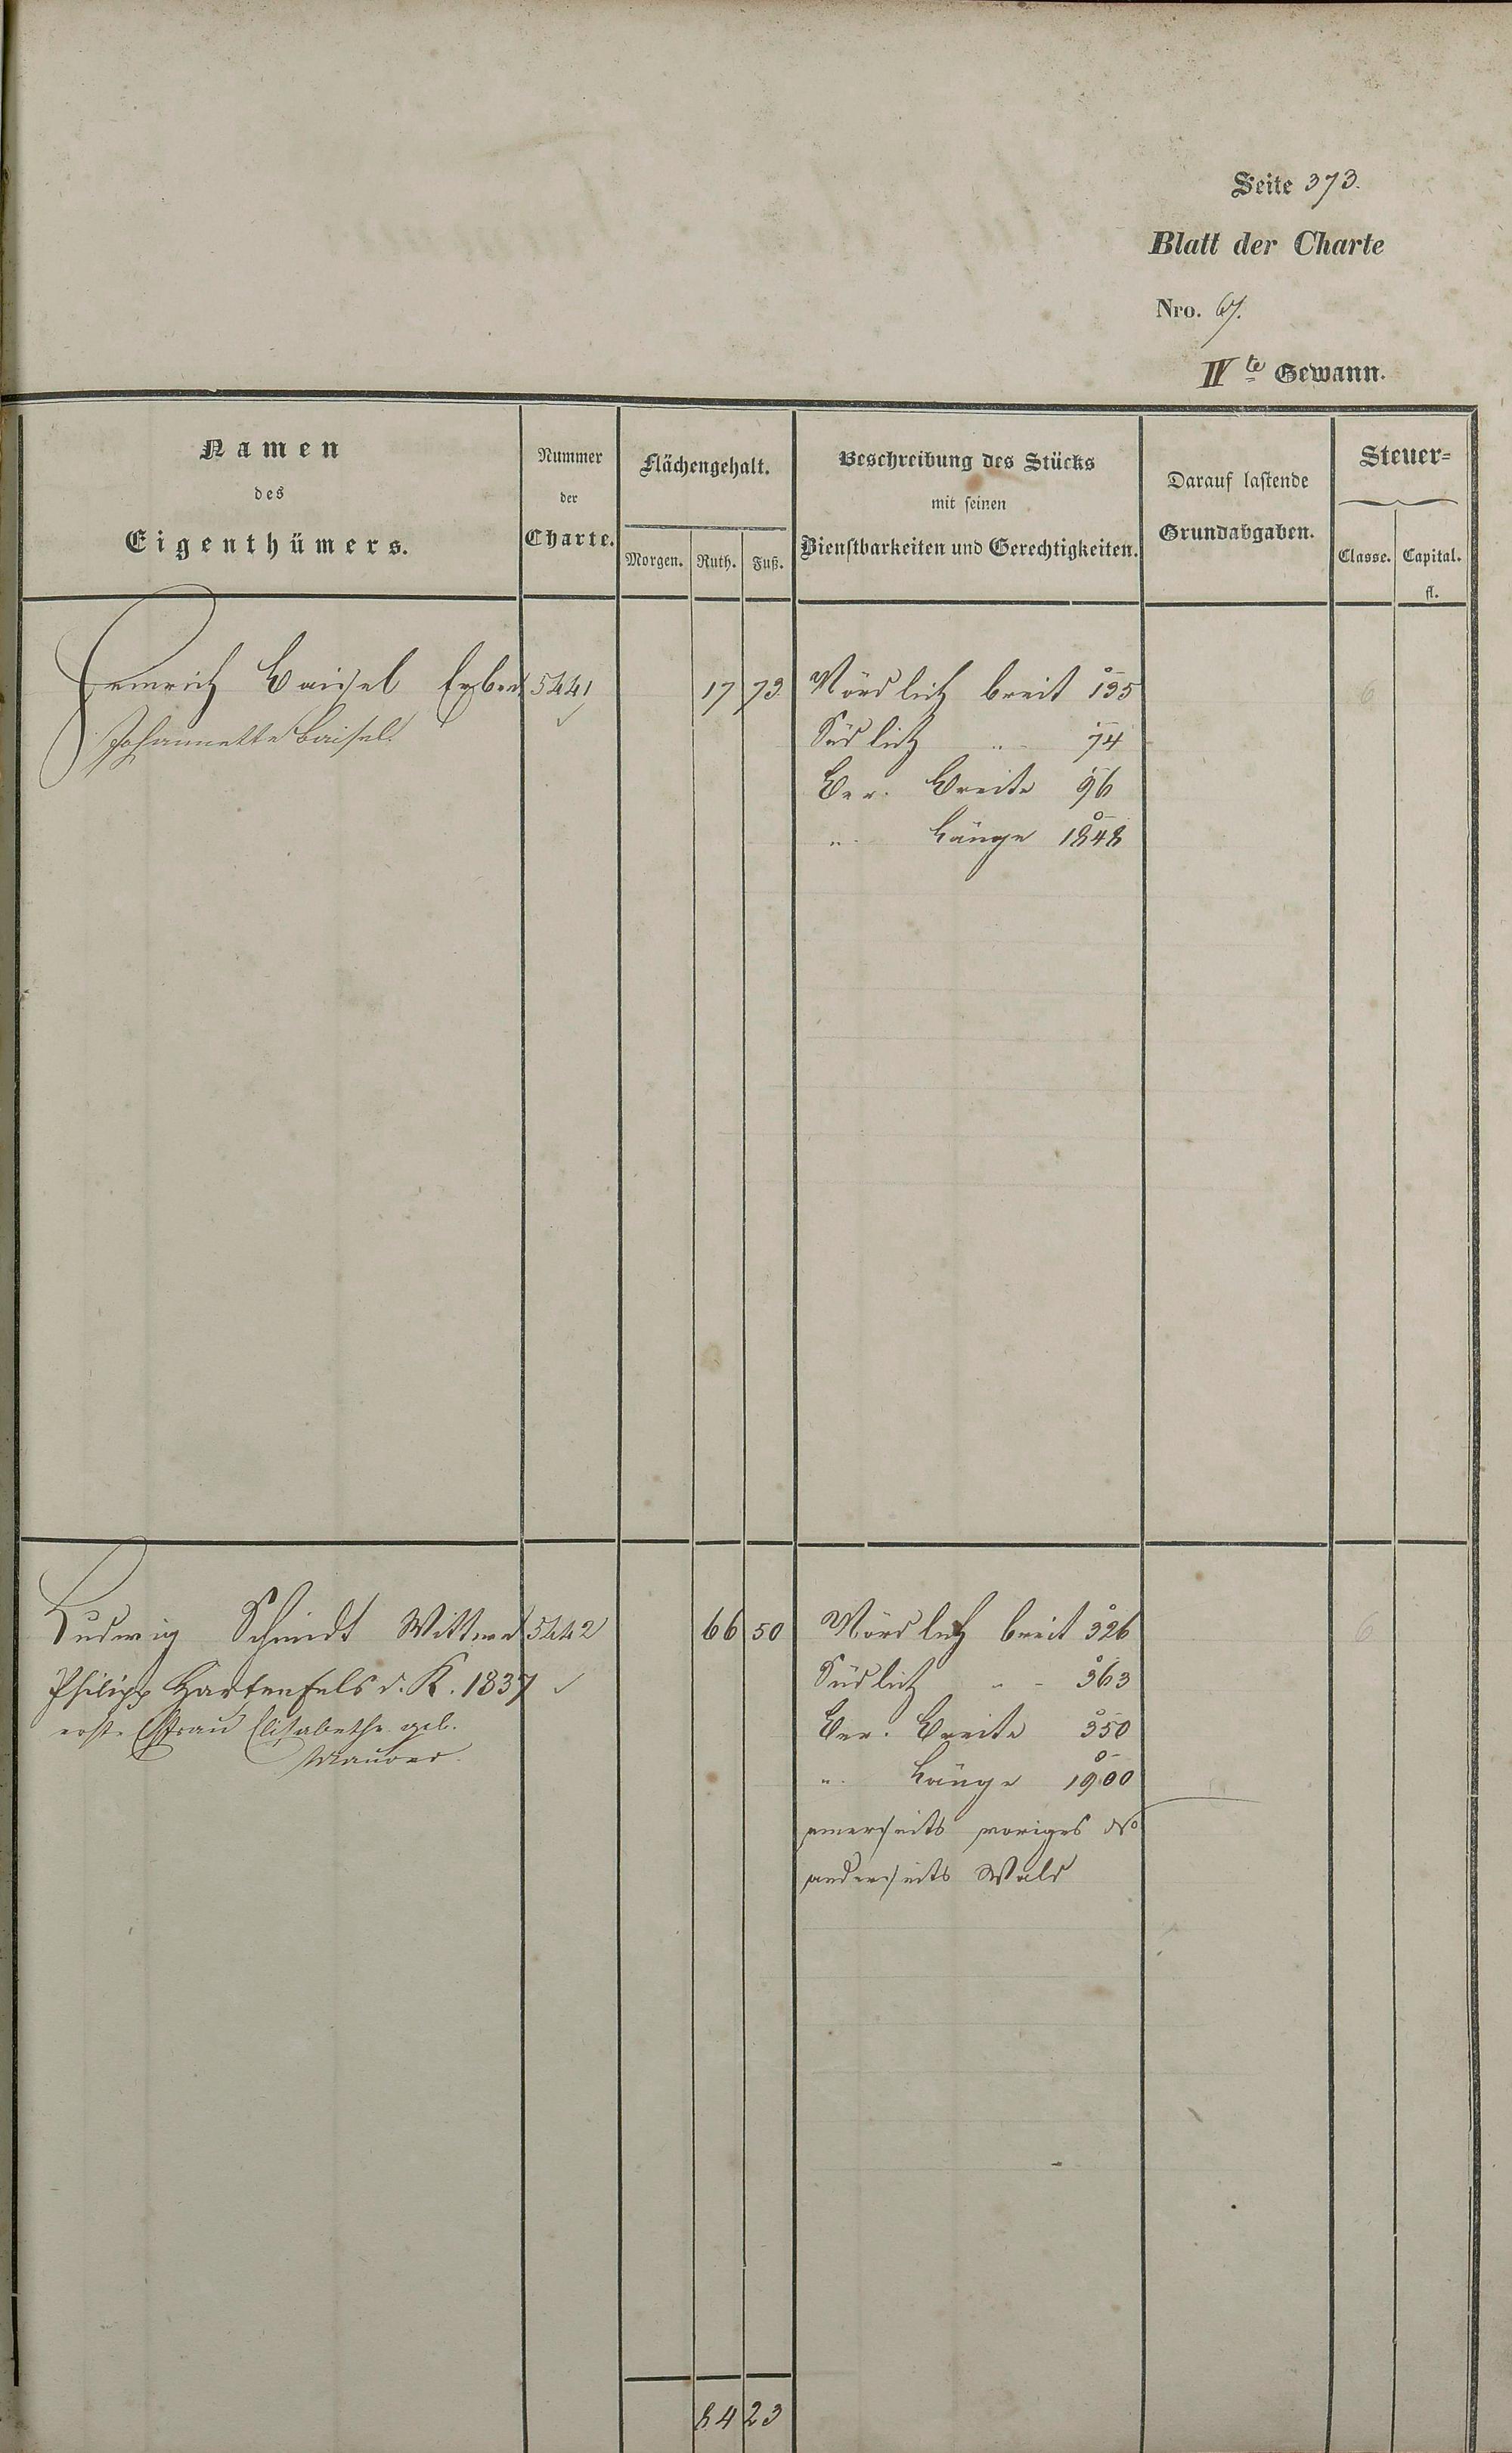 Seite 373.
Blatt der Charte
Nro. 67.
IV te Gewann.
Namen
des
Eigenthümers.
Nummer
der
Charte.
Flächengehalt.
Morgen. Ruth. Fuß.
Beschreibung des Stücks
mit seinen
Dienstbarkeiten und Gerechtigkeiten.
Darauf lastende
Grundabgaben.
Steuer-
Classe. Capital.
fl.
Heinrich Baisel Erben 5441 17 73 Nördlich breit 135 6
Johannette Baisel. Südlich " 74
Ber. Breite 96
" Länge 1848
Ludwig Schmidt Wittwe 5442 66 50 Nördlich breit 326 6
Philipp Hartenfels d. K. 1837 Südlich " 363
erste Ehfrau Elisabethe geb. Ber. Breite 350
Maurer. " Länge 1900
einerseits voriges No
anderseits Wald
84 23